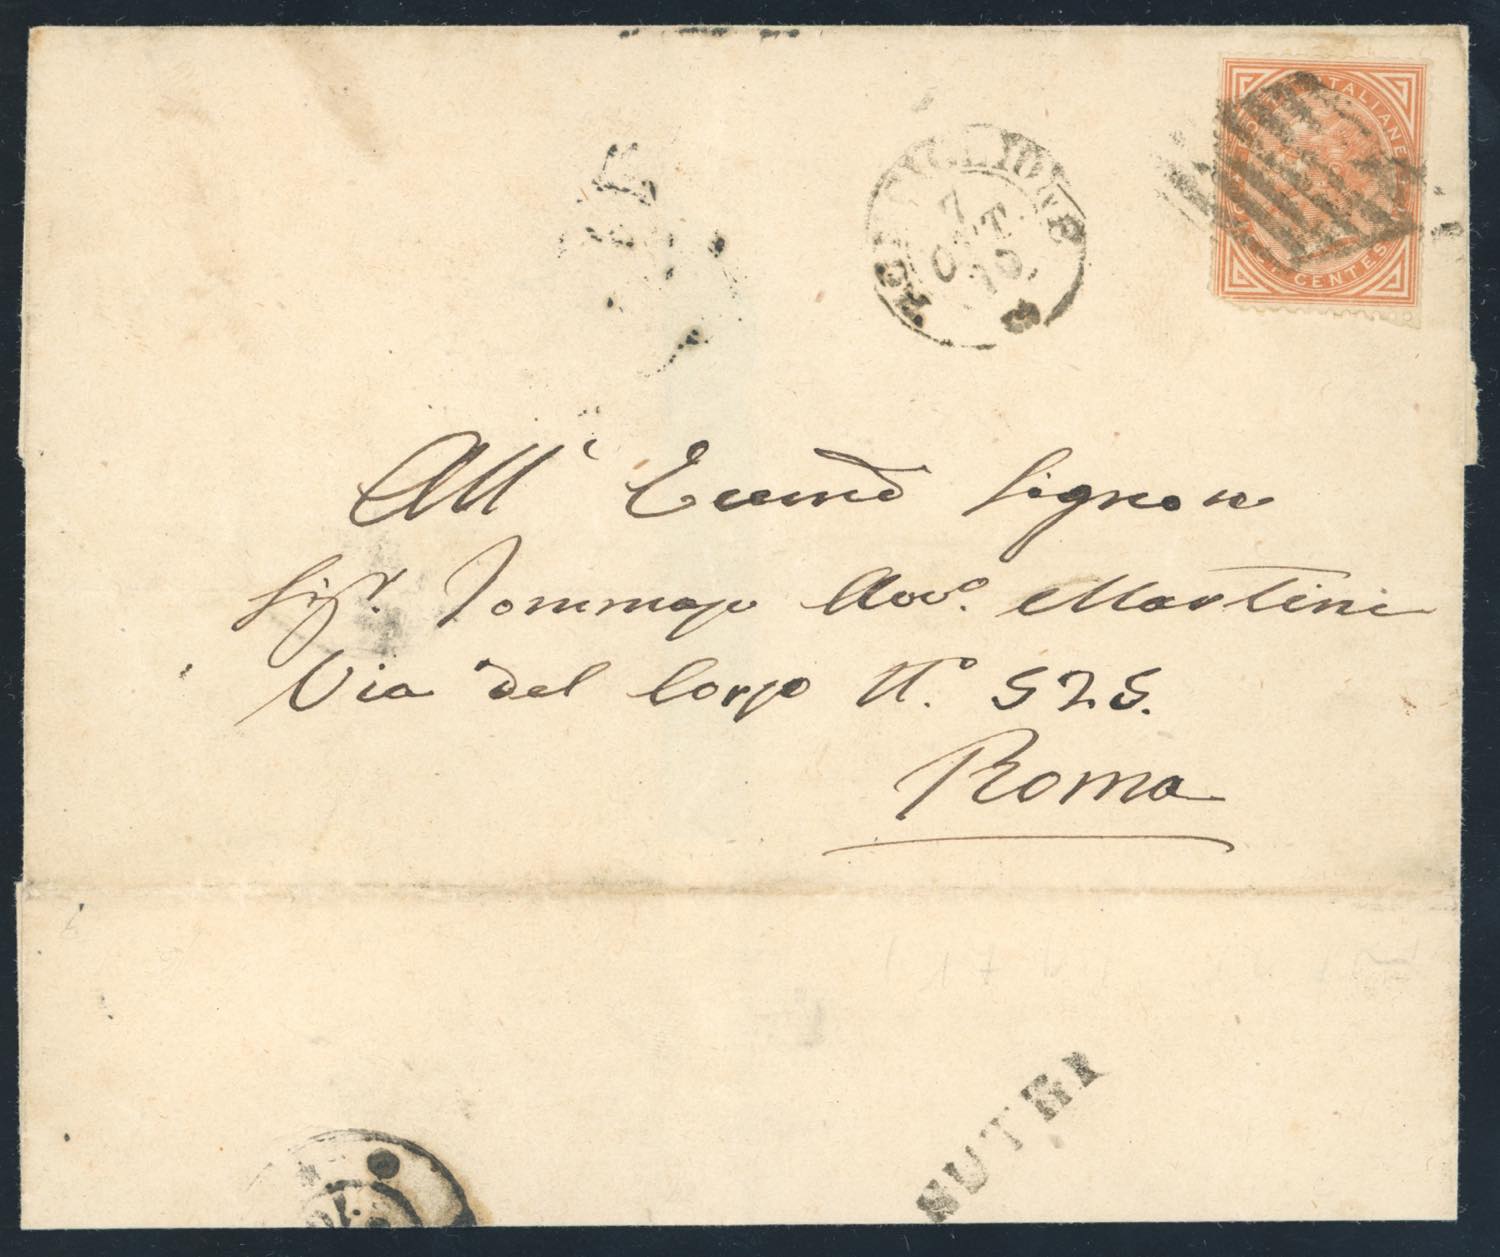 POSTE ITALIANE
DIECI CENTESIMI
RONCIGLIONE
7
OTT
70
All' Eccmo Signore
Sigr. Tommaso Avvo. Martini
Via del Corso No. 525.
Roma
SUTRI